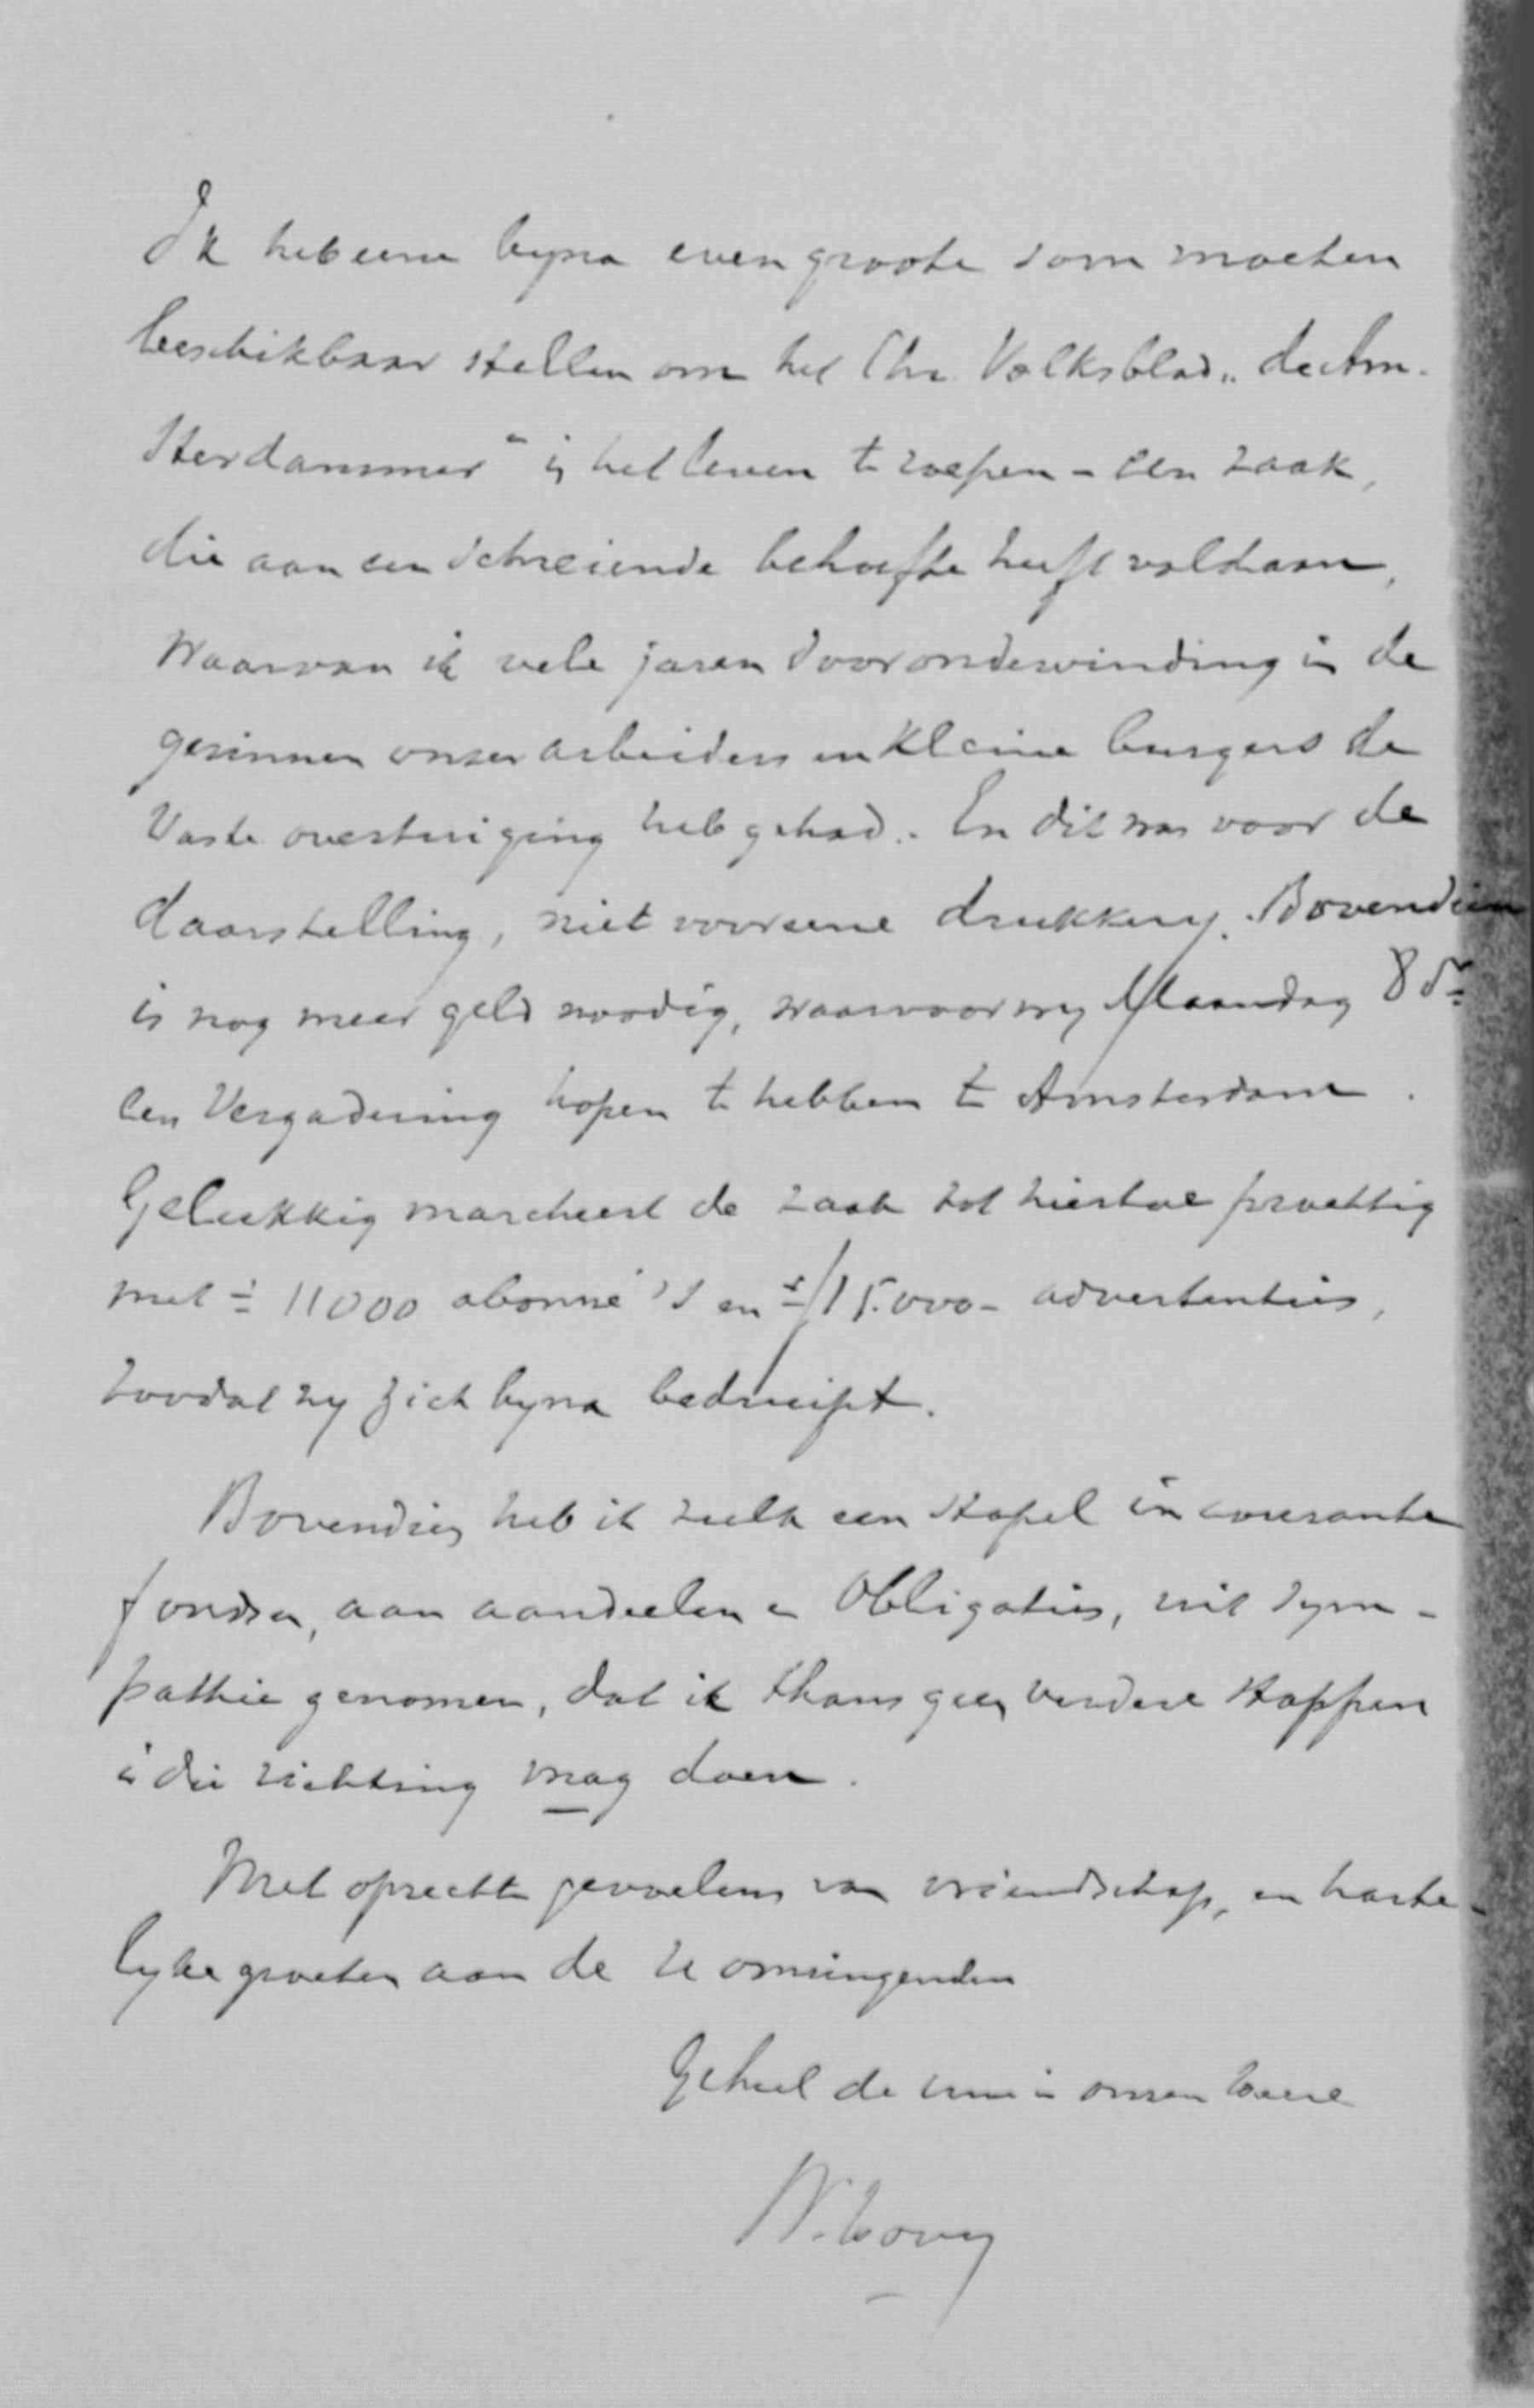 Ik heb eene byna even groote som moeten
beschikbaar stellen om het Chr. Volksblad „de Am-
sterdammer" in het leven te roepen - een zaak,
die aan een schreiende behoefte heeft voldaan,
waarvan ik vele jaren door ondervinding in de
gezinnen onzer arbeiders en kleine burgers de
vaste overtuiging heb gehad. En dit was voor de
daarstelling, niet voor eene drukkery. Bovendien
is nog meer geld noodig, waarvoor wy Maandag 8 dr
een Vergadering hopen te hebben te Amsterdam.
Gelukkig marcheert de zaak tot hiertoe prachtig
met ± 11000 abonné's en ± ƒ15.000- advertenties,
zoodat zy zich byna bedruipt.
Bovendien heb ik zulk een stapel incourante
fondsen, aan aandeelen en Obligaties, uit sym-
pathie genomen, dat ik thans geen verdere stappen
in die richting mag doen.
Met oprechte gevoelens van vriendschap, en harte-
lyke groeten aan de U omringenden
Geheel de uwe in onzen Heere
W. Hovy